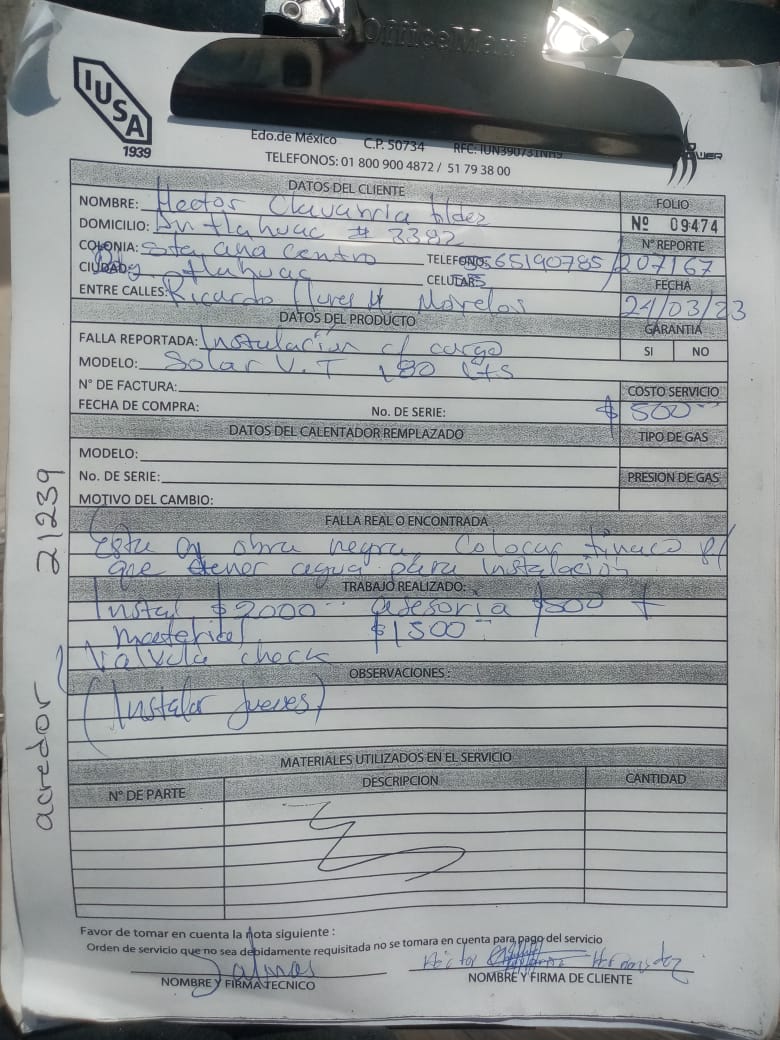 OfficeMax
IUSA
1939
Edo.de México C.P. 50734 RFC: IUN390731NH9
TELEFONOS: 01 800 900 4872 / 51 79 38 00
DATOS DEL CLIENTE
FOLIO
NOMBRE: Hector Olavarria Hdez
Nº 09474
DOMICILIO: Tlahuac # 3382
Nº REPORTE
COLONIA: Sta ana Centro TELEFONO: 65190785
207167
CIUDAD: Tlahuac CELULAR:
FECHA
ENTRE CALLES: Ricardo Flores M Morelos
24/03/23
DATOS DEL PRODUCTO
GARANTIA
FALLA REPORTADA: Instalación c/ cargo
SI NO
MODELO: Solar V.T 180 Lts
N° DE FACTURA:
COSTO SERVICIO
FECHA DE COMPRA: No. DE SERIE:
$ 500
DATOS DEL CALENTADOR REMPLAZADO
TIPO DE GAS
MODELO:
No. DE SERIE:
PRESION DE GAS
MOTIVO DEL CAMBIO:
FALLA REAL O ENCONTRADA
Esta en obra negra, Colocar tinaco p/
que tener agua para instalación
TRABAJO REALIZADO:
Instal $2000 asesoría $500 +
material $1500
Valvula check
OBSERVACIONES :
(Instalar jueves)
MATERIALES UTILIZADOS EN EL SERVICIO
N° DE PARTE DESCRIPCION CANTIDAD
Favor de tomar en cuenta la nota siguiente :
Orden de servicio que no sea debidamente requisitada no se tomara en cuenta para pago del servicio
Hector Hernandez
NOMBRE Y FIRMA TECNICO NOMBRE Y FIRMA DE CLIENTE
acredor 21239